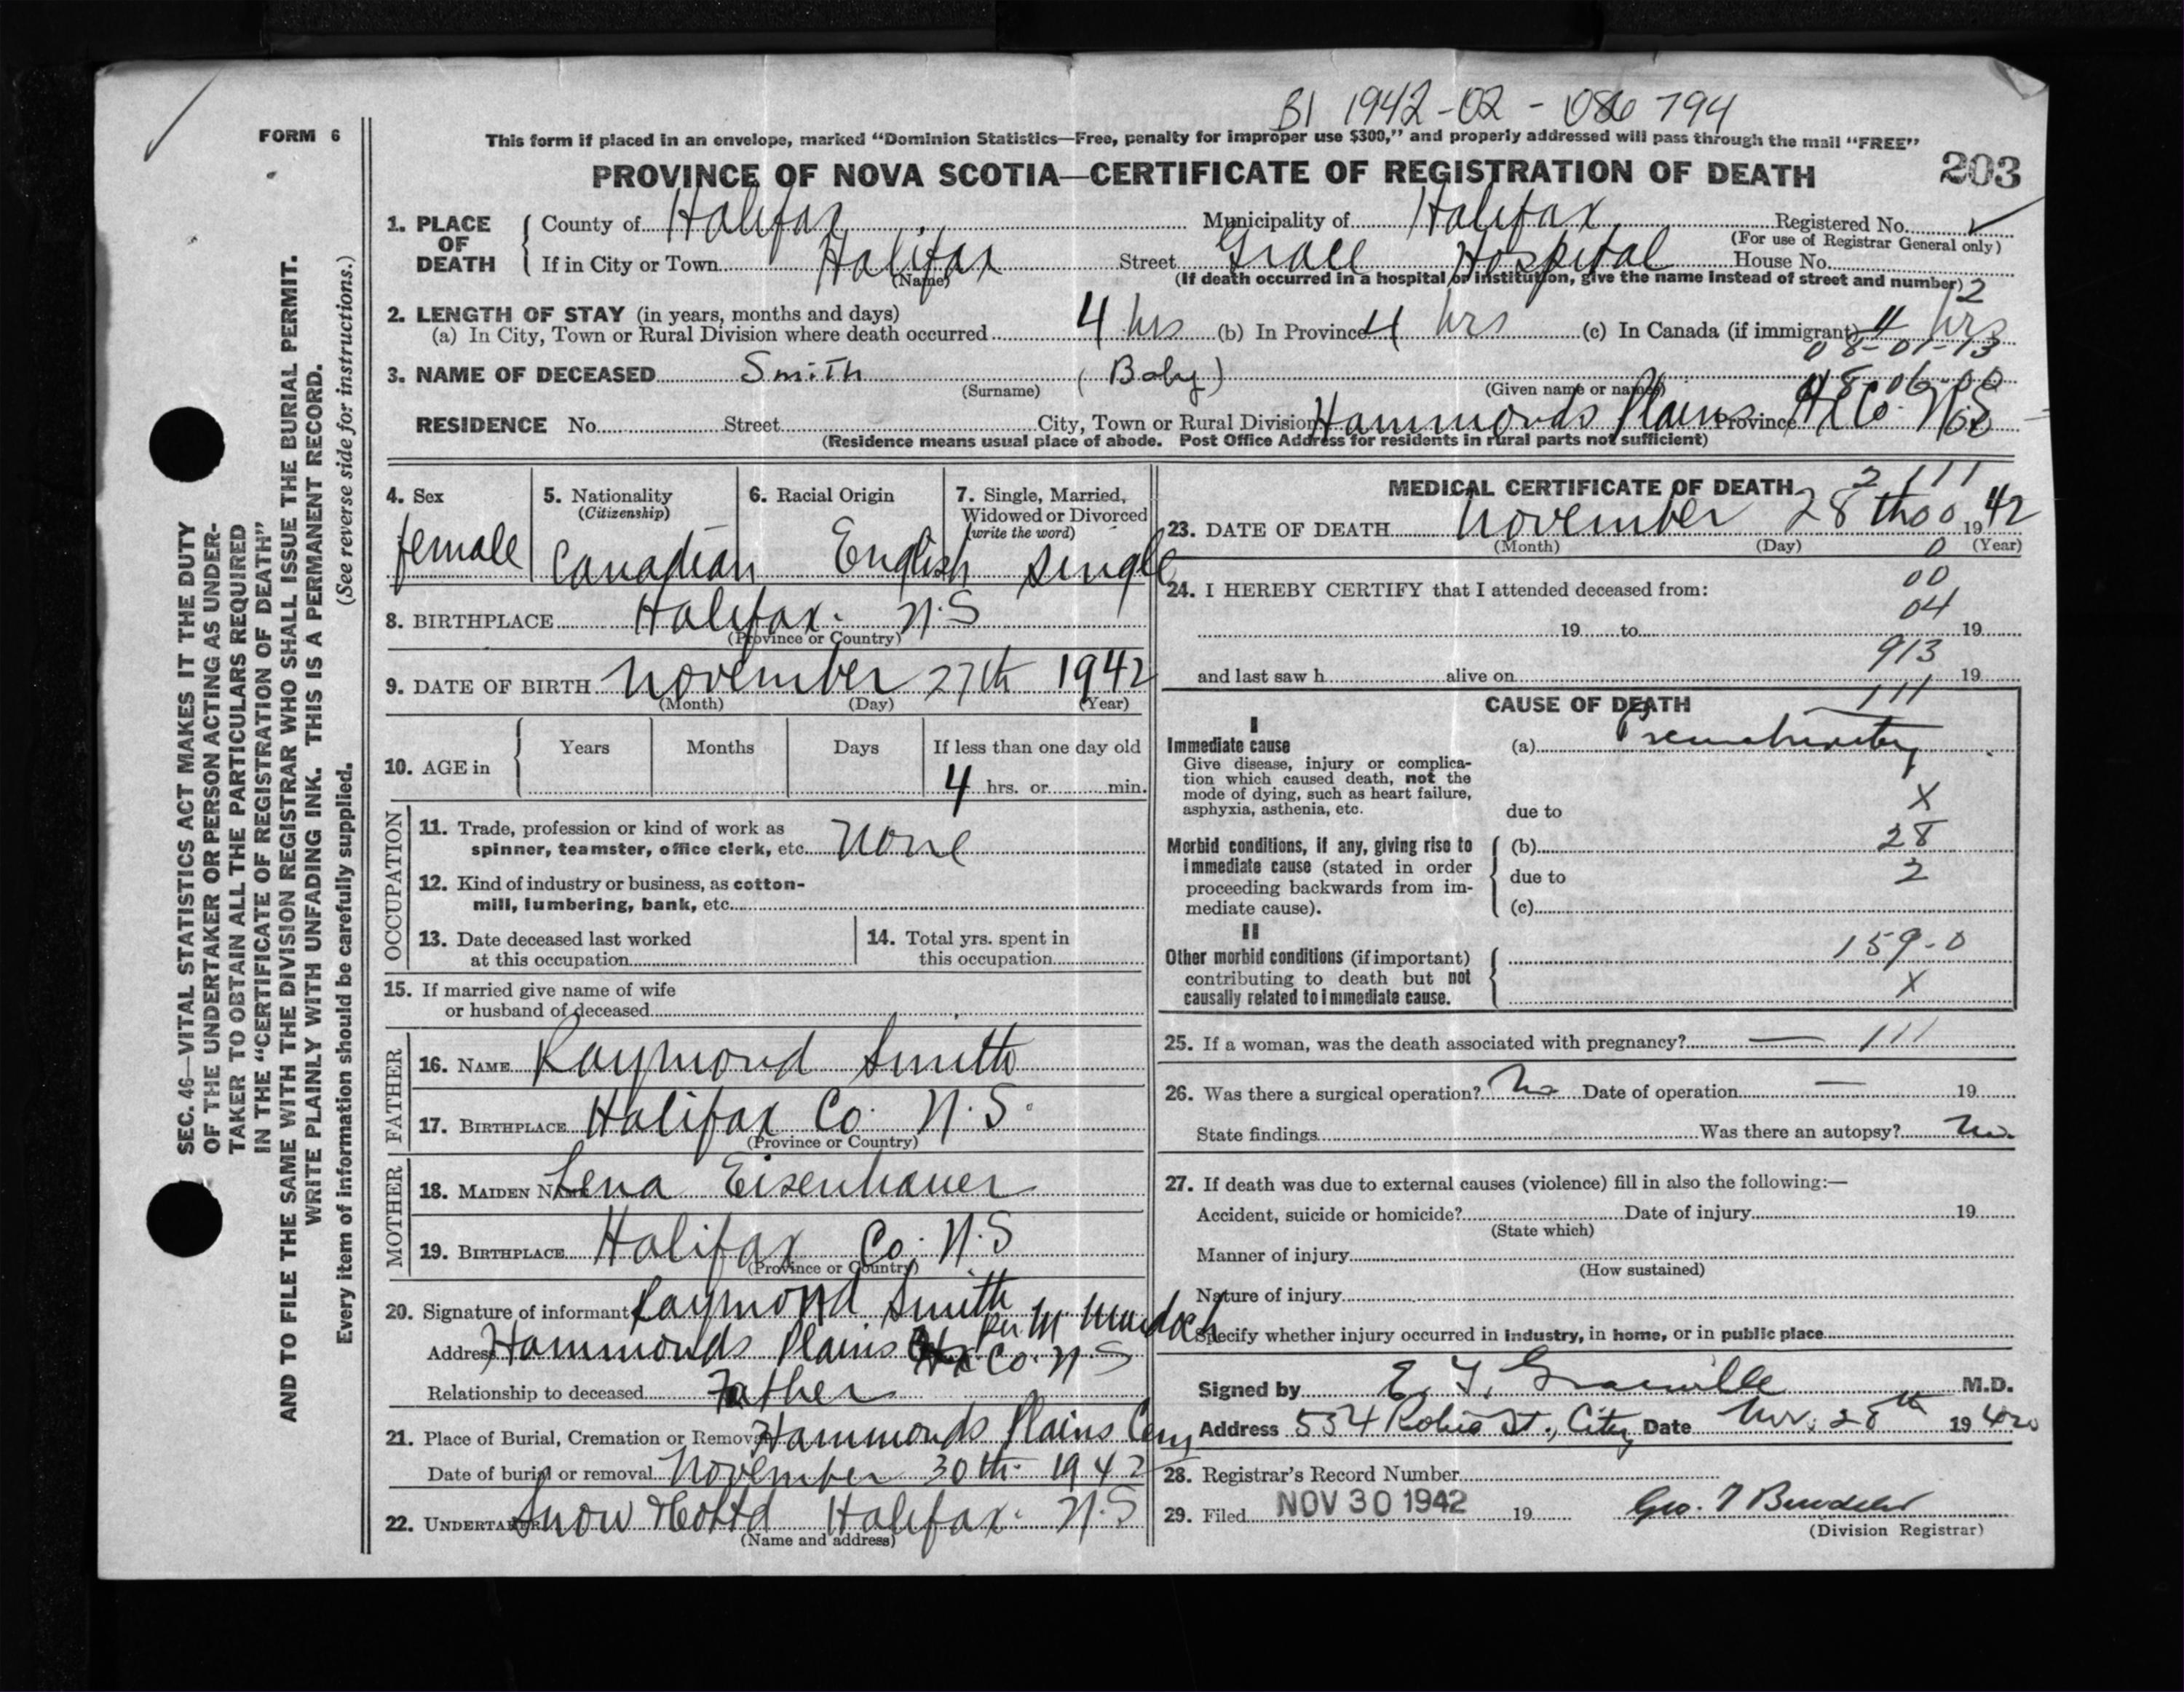 B1 1942-02-086794
FORM 6
This form if placed in an envelope, marked “Dominion Statistics—Free, penalty for improper use $300,” and properly addressed will pass through the mail “FREE”
PROVINCE OF NOVA SCOTIA—CERTIFICATE OF REGISTRATION OF DEATH 203
1. PLACE OF DEATH County of Halifax Municipality of Halifax Registered No.
(For use of Registrar General only)
If in City or Town Halifax Street Grace Hospital House No.
(Name) (If death occurred in a hospital or institution, give the name instead of street and number) 2
2. LENGTH OF STAY (in years, months and days)
(a) In City, Town or Rural Division where death occurred 4 hrs (b) In Province 4 hrs (c) In Canada (if immigrant) 4 hrs
08-01-13
3. NAME OF DECEASED Smith (Baby)
(Surname) (Given name or names) 08-06-00
RESIDENCE No. Street City, Town or Rural Division Hammonds Plains Province Hx Co. N.S
(Residence means usual place of abode. Post Office Address for residents in rural parts not sufficient)
4. Sex female
5. Nationality (Citizenship) Canadian
6. Racial Origin English
7. Single, Married, Widowed or Divorced (write the word) single
8. BIRTHPLACE Halifax. N.S
(Province or Country)
9. DATE OF BIRTH November 27th 1942
(Month) (Day) (Year)
10. AGE in Years Months Days If less than one day old
4 hrs. or min.
OCCUPATION
11. Trade, profession or kind of work as
spinner, teamster, office clerk, etc. None
12. Kind of industry or business, as cotton-
mill, lumbering, bank, etc.
13. Date deceased last worked
at this occupation
14. Total yrs. spent in
this occupation
15. If married give name of wife
or husband of deceased
FATHER
16. NAME Raymond Smith
17. BIRTHPLACE Halifax Co. N.S.
(Province or Country)
MOTHER
18. MAIDEN NAME Lena Eisenhauer
19. BIRTHPLACE Halifax Co. N.S
(Province or Country)
20. Signature of informant Raymond Smith per M Murdoch
Address Hammonds Plains Hx Co. N.S
Relationship to deceased Father
21. Place of Burial, Cremation or Removal Hammonds Plains Cem
Date of burial or removal November 30th 1942
22. UNDERTAKER Snow & Co Ltd Halifax. N.S
(Name and address)
MEDICAL CERTIFICATE OF DEATH 2 111
23. DATE OF DEATH November 28th 00 1942
(Month) (Day) 0 (Year)
24. I HEREBY CERTIFY that I attended deceased from: 00
04
19 to 19
913
and last saw h alive on 19
111
CAUSE OF DEATH
I
Immediate cause (a) Prematurity
Give disease, injury or complica-
tion which caused death, not the
mode of dying, such as heart failure,
asphyxia, asthenia, etc. due to X
Morbid conditions, if any, giving rise to (b) 28
immediate cause (stated in order due to 2
proceeding backwards from im-
mediate cause). (c)
II
Other morbid conditions (if important) 159-0
contributing to death but not
causally related to immediate cause. X
25. If a woman, was the death associated with pregnancy? — 111
26. Was there a surgical operation? No Date of operation — 19
State findings Was there an autopsy? No.
27. If death was due to external causes (violence) fill in also the following:—
Accident, suicide or homicide? Date of injury 19
(State which)
Manner of injury
(How sustained)
Nature of injury
Specify whether injury occurred in industry, in home, or in public place
Signed by E. T. Granville M.D.
Address 554 Robie St., City Date Nov. 28th 1942
28. Registrar's Record Number
29. Filed NOV 30 1942 19 Geo. T
(Division Registrar)
SEC. 46—VITAL STATISTICS ACT MAKES IT THE DUTY
OF THE UNDERTAKER OR PERSON ACTING AS UNDER-
TAKER TO OBTAIN ALL THE PARTICULARS REQUIRED
IN THE “CERTIFICATE OF REGISTRATION OF DEATH”
AND TO FILE THE SAME WITH THE DIVISION REGISTRAR WHO SHALL ISSUE THE BURIAL PERMIT.
WRITE PLAINLY WITH UNFADING INK. THIS IS A PERMANENT RECORD.
Every item of information should be carefully supplied. (See reverse side for instructions.)